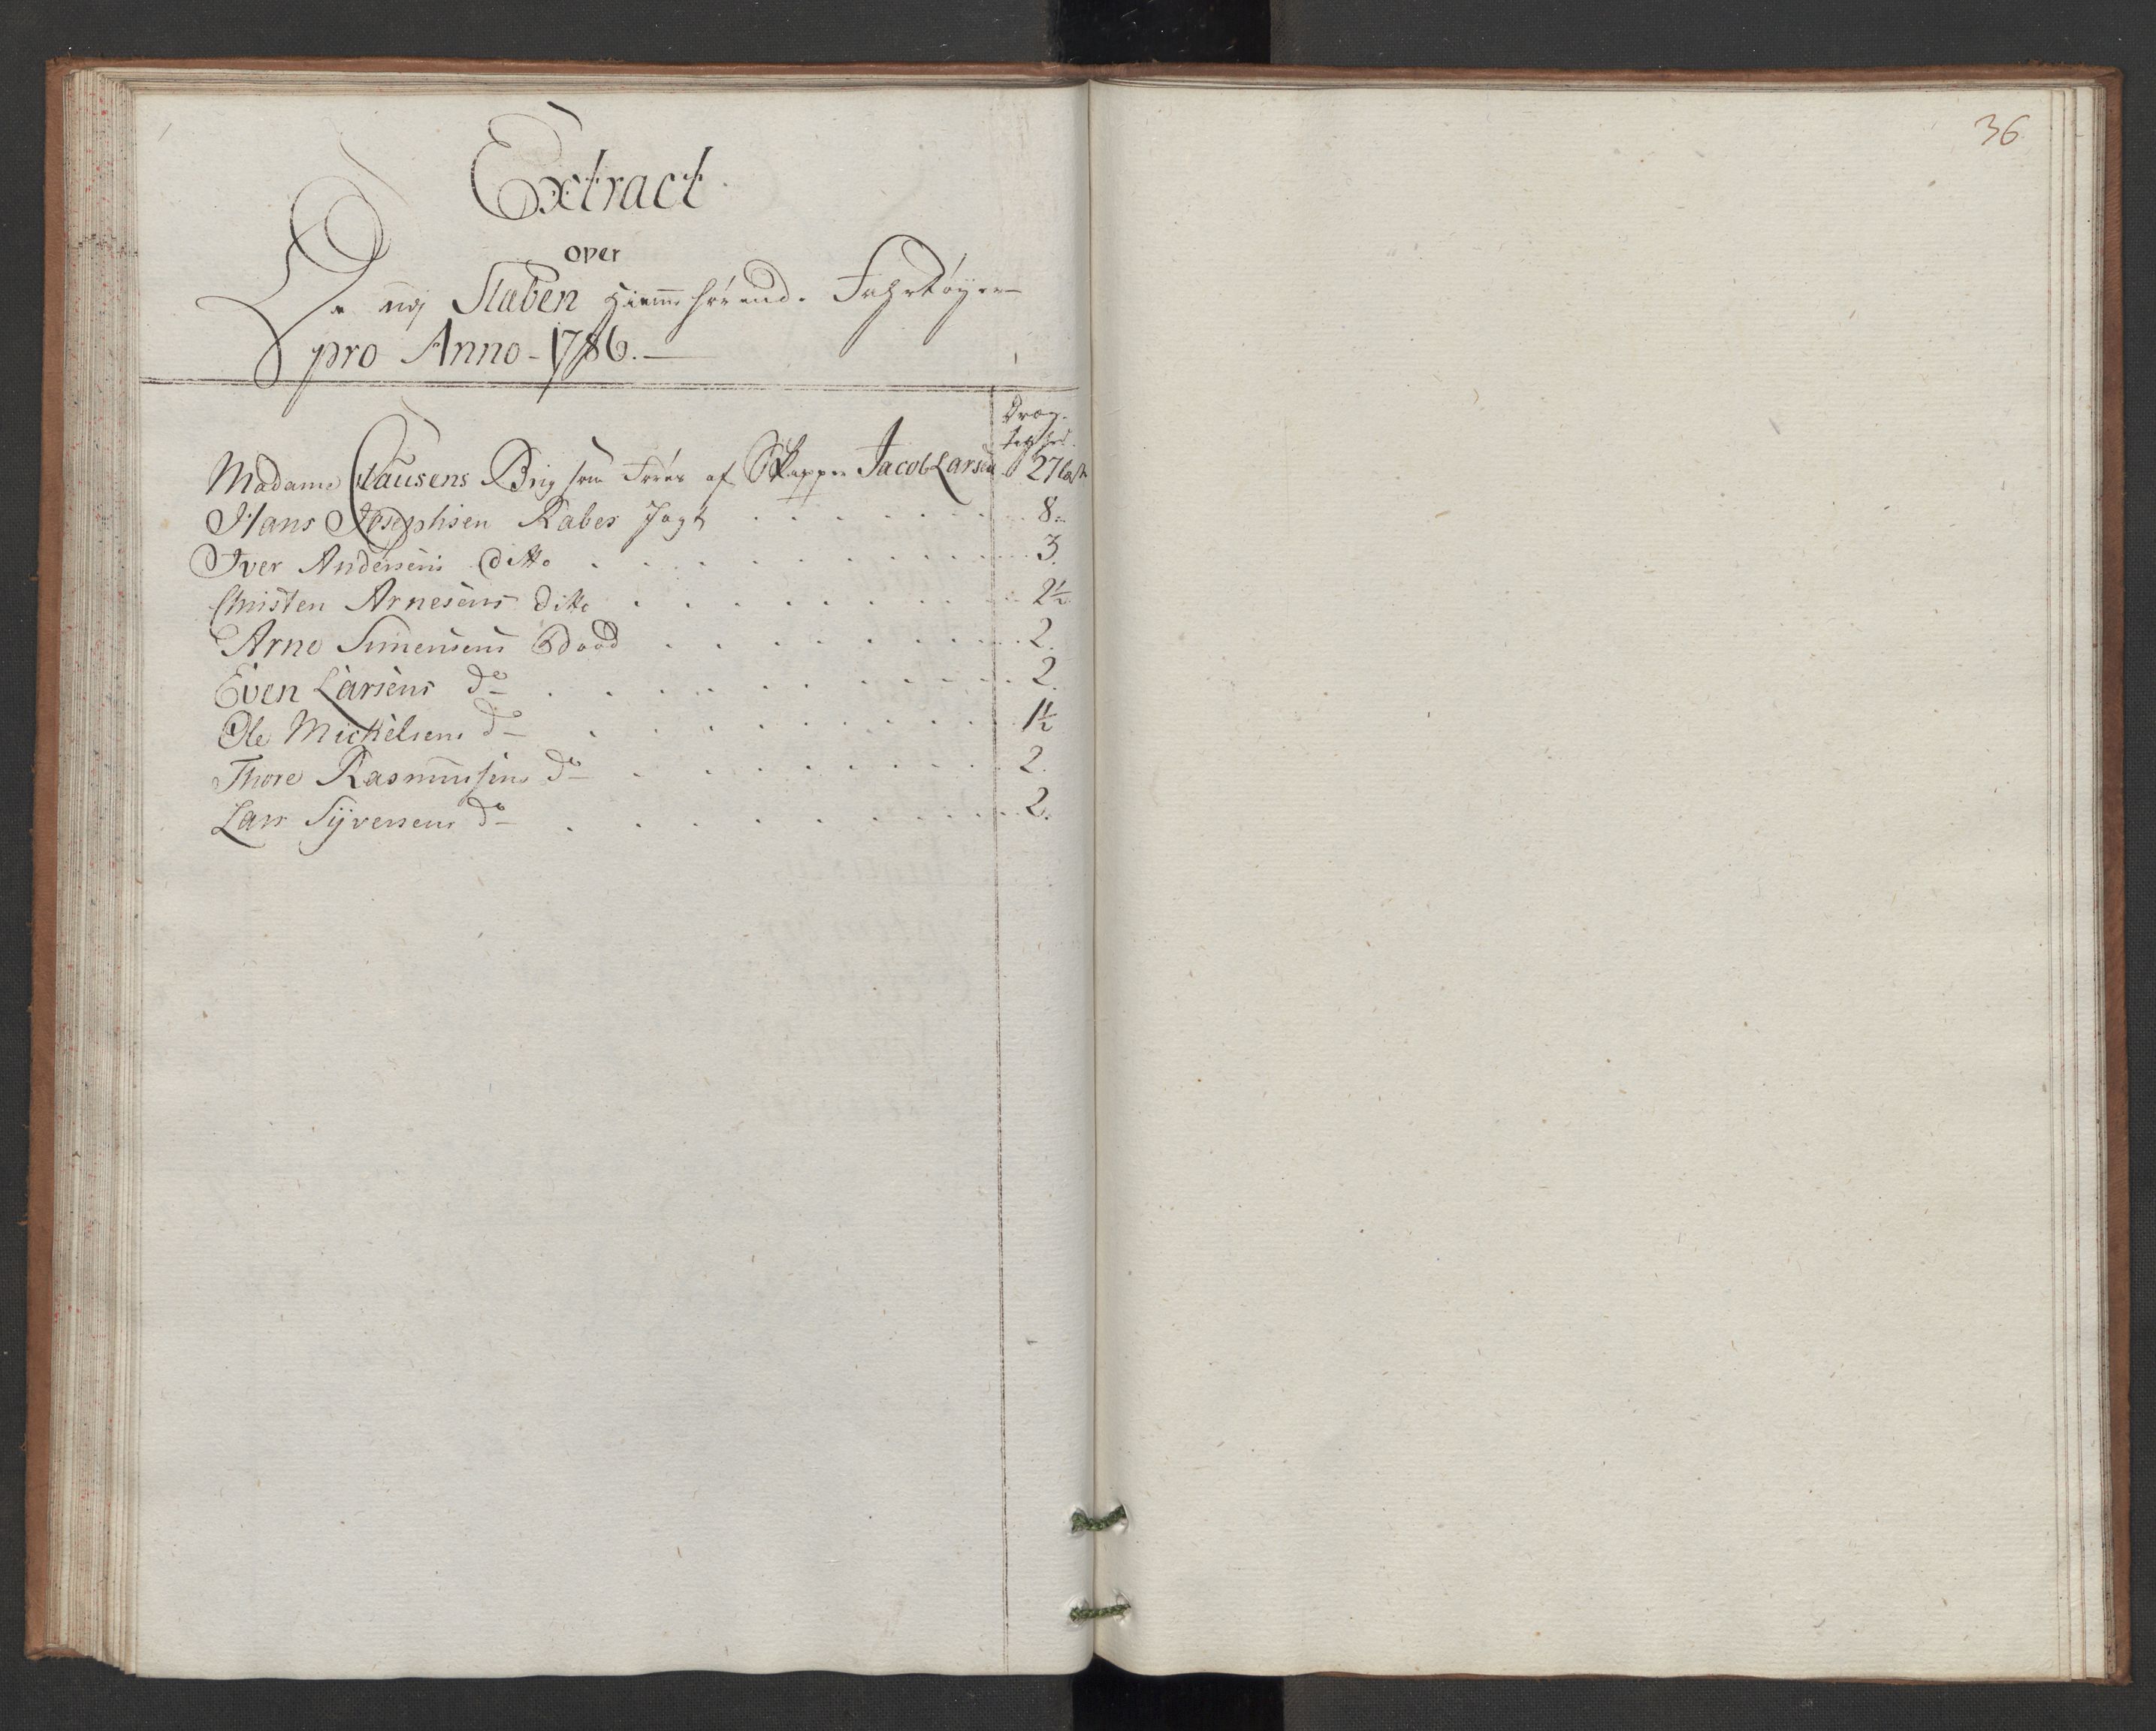 Extract
over
De udj Staben Hiemmehørende Fahrtøyer
pro Anno 1786.
Drægtighed.
Madame Clausens Brig som Føres af Skipper Jacob Larsen 27 læst
Hans Josephsen Rabes Jagt . . . . . . 8
Iver Andersens ditto . . . . . . 3.
Christen Arnesens ditto . . . . . . 2½
Arne Simensens Baad . . . . . . 2.
Even Larsens do . . . . . . 2.
Ole Mickelsens do . . . . . . 1½
Thore Rasmussens do . . . . . . 2.
Lars Syversens do . . . . . . 2.
36